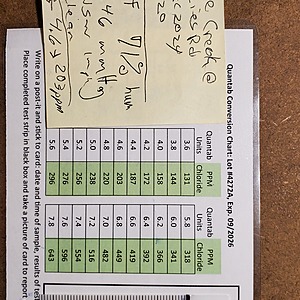 Creek @
Rd
2024
20
71% hum
46 mmHg
4.6 203 ppm
Quantab Conversion Chart: Lot #4272A, Exp. 09/2026
Quantab Units PPM Chloride Quantab Units PPM Chloride
3.6 131 5.8 318
3.8 144 6.0 341
4.0 158 6.2 366
4.2 172 6.4 392
4.4 187 6.6 419
4.6 203 6.8 449
4.8 220 7.0 482
5.0 238 7.2 516
5.2 256 7.4 554
5.4 276 7.6 596
5.6 296 7.8 643
Write on a post-it and stick to card: date and time of sample, results of tes
Place completed test strip in black box and take a picture of card to report